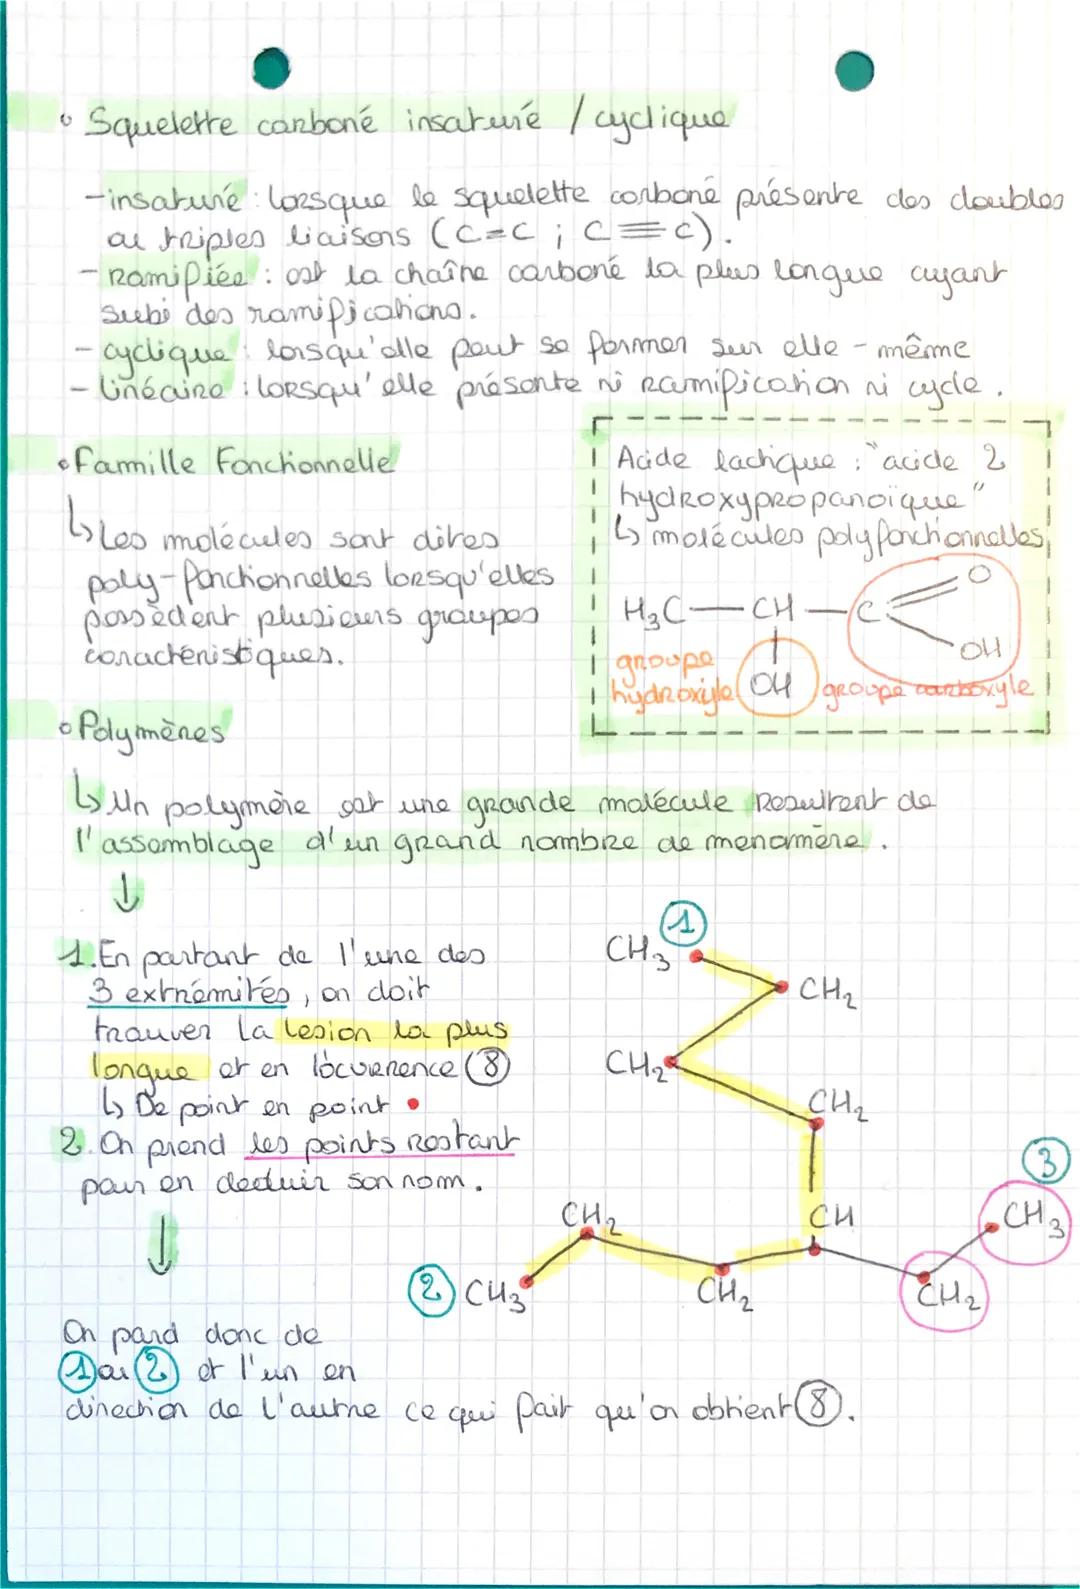 • Squelette carboné insaturé / cyclique
- insaturé : lorsque le squelette carboné présente des doubles
ou triples liaisons (C=C ; C≡C).
- Ramifiée : est la chaîne carboné la plus longue ayant
subi des ramifications.
- cyclique : lorsqu'elle peut se fermer sur elle-même
- linéaire : lorsqu'elle présente ni ramification ni cycle.
• Famille Fonctionnelle
↳ Les molécules sont dites
poly-fonctionnelles lorsqu'elles
possèdent plusieurs groupes
caractéristiques.
Acide lactique : "acide 2
hydroxypropanoïque"
↳ molécules polyfonctionnelles
H₃C — CH — C
O
OH
OH
groupe
hydroxyle
groupe carboxyle
• Polymères
↳ Un polymère est une grande molécule resultent de
l'assemblage d'un grand nombre de menomère.
↓
1. En partant de l'une des
3 extrémités, on doit
trouver la lesion la plus
longue et en l'ocurrence (8)
↳ De point en point •
2. On prend les points restant
pour en deduir son nom.
↓
On pard donc de
① ou ② et l'un en
direction de l'autre ce qui fait qu'on obtient (8).
1
CH₃
CH₂
CH₂
CH₂
3
CH₂
CH
CH₃
2
CH₃
CH₂
CH₂